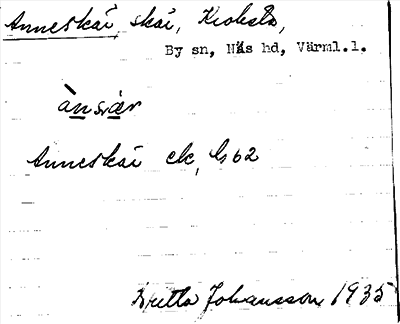 Anneskär skär, Krokstad,
By sn, Näs hd, Värml.l.
ànsϟær
Anneskär ek, G 62
Britta Johansson 1935